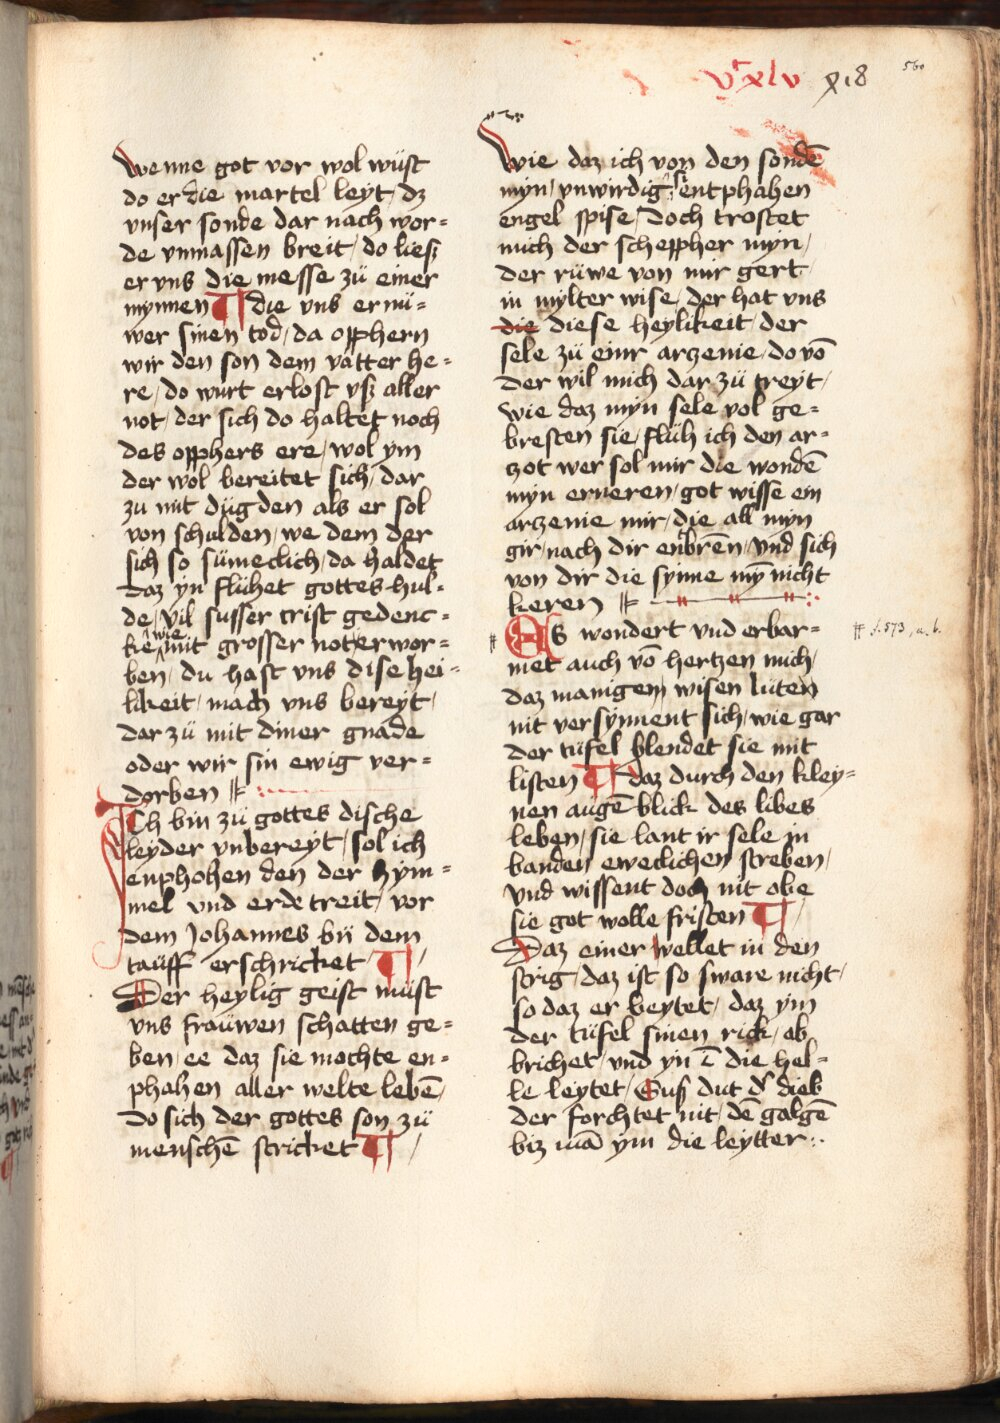 vᶜxlv 918 560
wenne got vor wol wüst
do er die martel leyt / dz
vnser sonde dar nach wor=
de vnmassen breit / do liesz
er vns die messe zü einer
mynnen ¶ die vns ernü=
wer sinen tod / da opphern
wir den son dem vatter he=
re / do wurt erlost vsz aller
not / der sich do haltet noch
des opphers ere / wol ym
der wol bereitet sich / dar
zu mit dügden als er sol
von schulden / we dem der
sich so sümeclich / da haldet
daz yn flühet gottes hul=
de / vil susser crist gedenc=
ke wie mit grosser not erwor=
ben / du hast vns dise hei=
likeit / mach vns bereyt /
dar zü mit diner gnade
oder wir sin ewig ver=
dorben
Ich bin zü gottes dische
leyder vnbereyt / sol ich
enphohen den der hym=
mel vnd erde treit / vor
dem Johannes bü dem
tauff erschricket ¶
Der heylig geist müst
vns frauwen schatten ge=
ben / ee daz sie mochte en=
phahen aller welte lebē /
do sich der gottes son zü
menschē stricket ¶
wie daz ich von den sondē
myn / vnwirdig entphahen
engel spise / doch trostet
mich der schepher myn /
der rüwe von mir gert
in mylter wise / der hat vns
die diese heylikeit / der
sele zü einr arzenie / do vō
der wil mich dar zü treyt /
wie daz myn sele vol ge=
bresten sie / flüh ich den ar=
zot wer sol mir die wondē
myn erneren / got wisse ein
arzenie mir / die all myn
gir / nach dir enbrēn / vnd sich
von dir die synne mȳ nicht
keren
Es wondert vnd erbar= f. 573, a. b.
met auch vō hertzen mich /
daz manigem wisen lüten
nit versynnent sich / wie gar
der tüfel blendet sie mit
listen ¶ daz durch den kley=
nen augē blick des libes
leben / sie lant ir sele in
banden eweclichen streben /
vnd wissent doch nit obe
sie got wolle fristen ¶
Daz einer wellet in den
strig / daz ist so sware nicht /
so daz er beytet / daz ym
der tüfel sinen rick / ab
brichet / vnd yn ī die hel=
le leytet / Susz dut d' dieb
der forchtet nit / dē galgē
biz mā ym die leytter